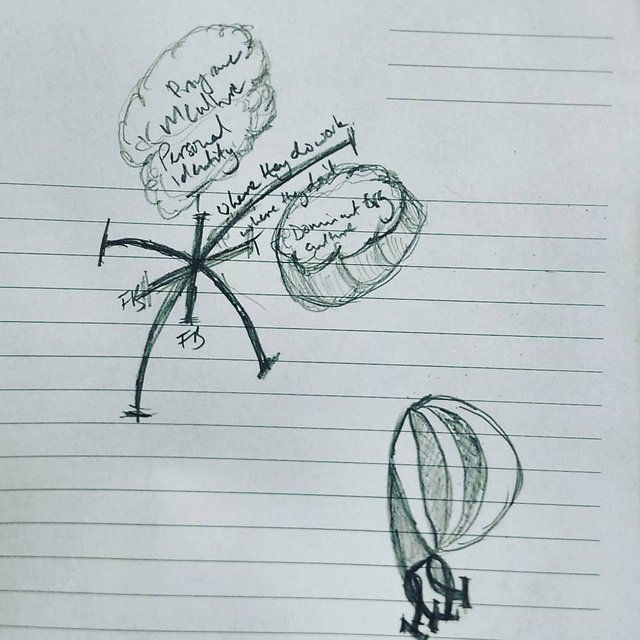 Culture
Personal
identity
where they do work
where they don't
Dominant Org
culture
FB
FB